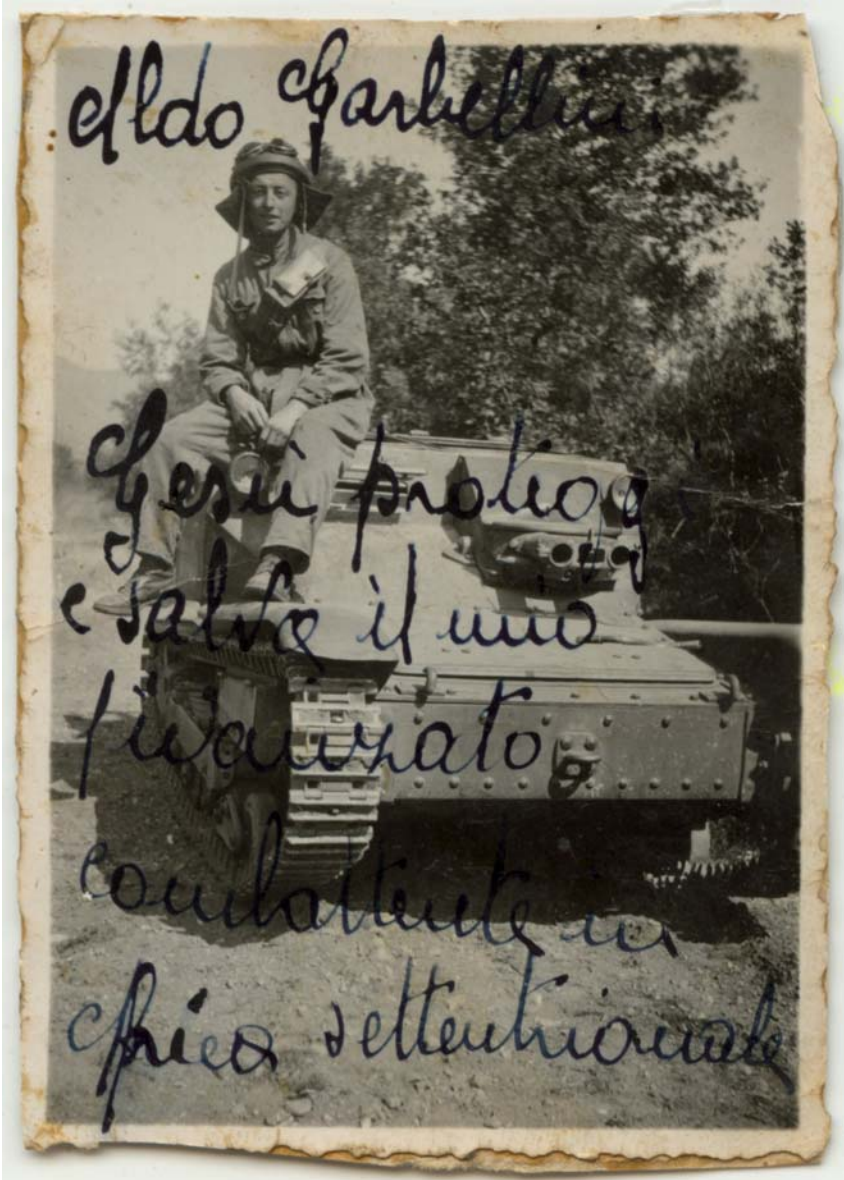 Aldo Garbellini
Gesù proteggi
e salva il mio
fidanzato
combattente in
Africa settentrionale